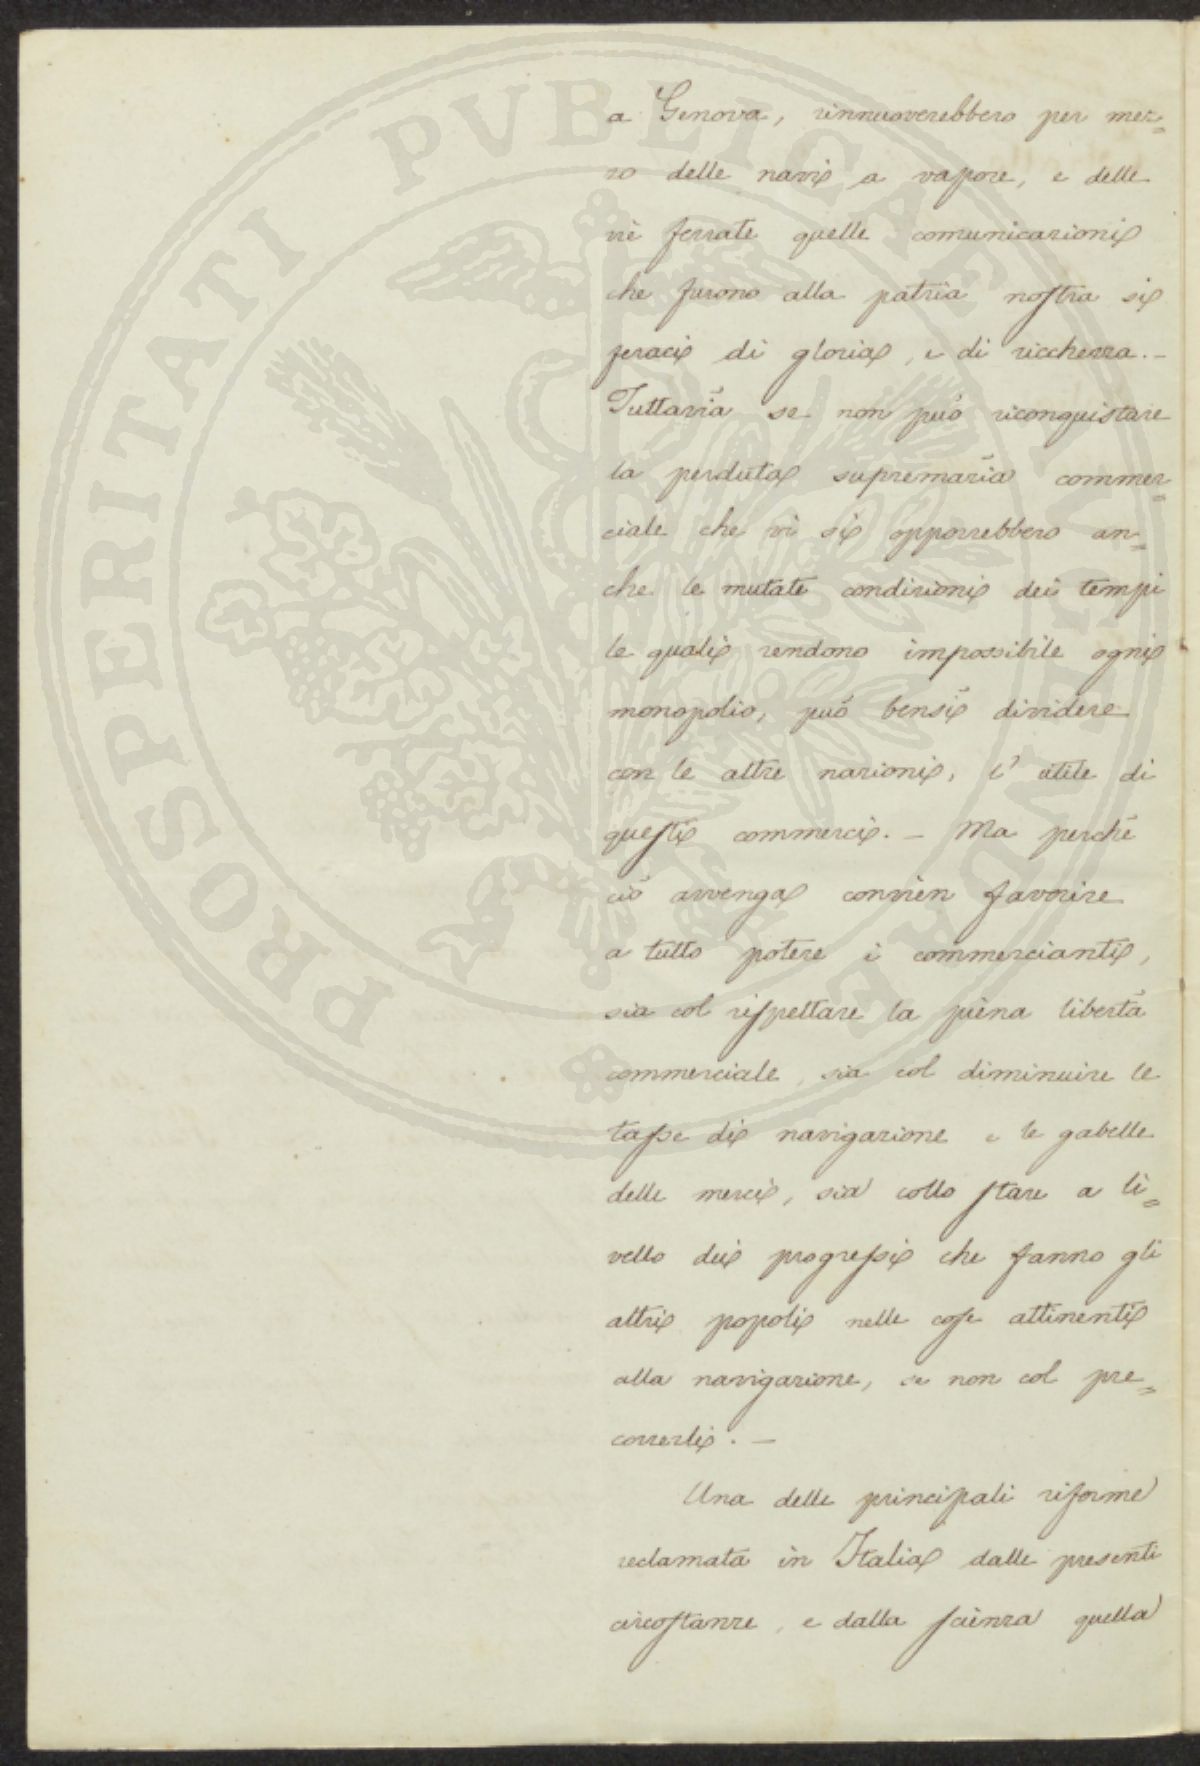 a Genova, rinnuoverebbero per mez=
zo delle navi a vapore, e delle
vie ferrate quelle comunicazioni
che furono alla patria nostra sì
feraci di gloria, e di ricchezza. –
Tuttavia se non può riconquistare
la perduta supremazia commer=
ciale che vi si opporrebbero an=
che le mutate condizioni dei tempi
le quali rendono impossibile ogni
monopolio, può bensì dividere
con le altre nazioni, l'utile di
questi commerci. – Ma perchè
ciò avvenga convien favorire
a tutto potere i commercianti,
sia col rispettare la piena libertà
commerciale, sia col diminuire le
tasse di navigazione e le gabelle
delle merci, sia collo stare a li=
vello dei progressi che fanno gli
altri popoli nelle cose attinenti
alla navigazione, se non col pre=
correrli. –
Una delle principali riforme
reclamata in Italia dalle presenti
circostanze, e dalla scienza quella
PROSPERITATI PVBLICAE AVGENDAE